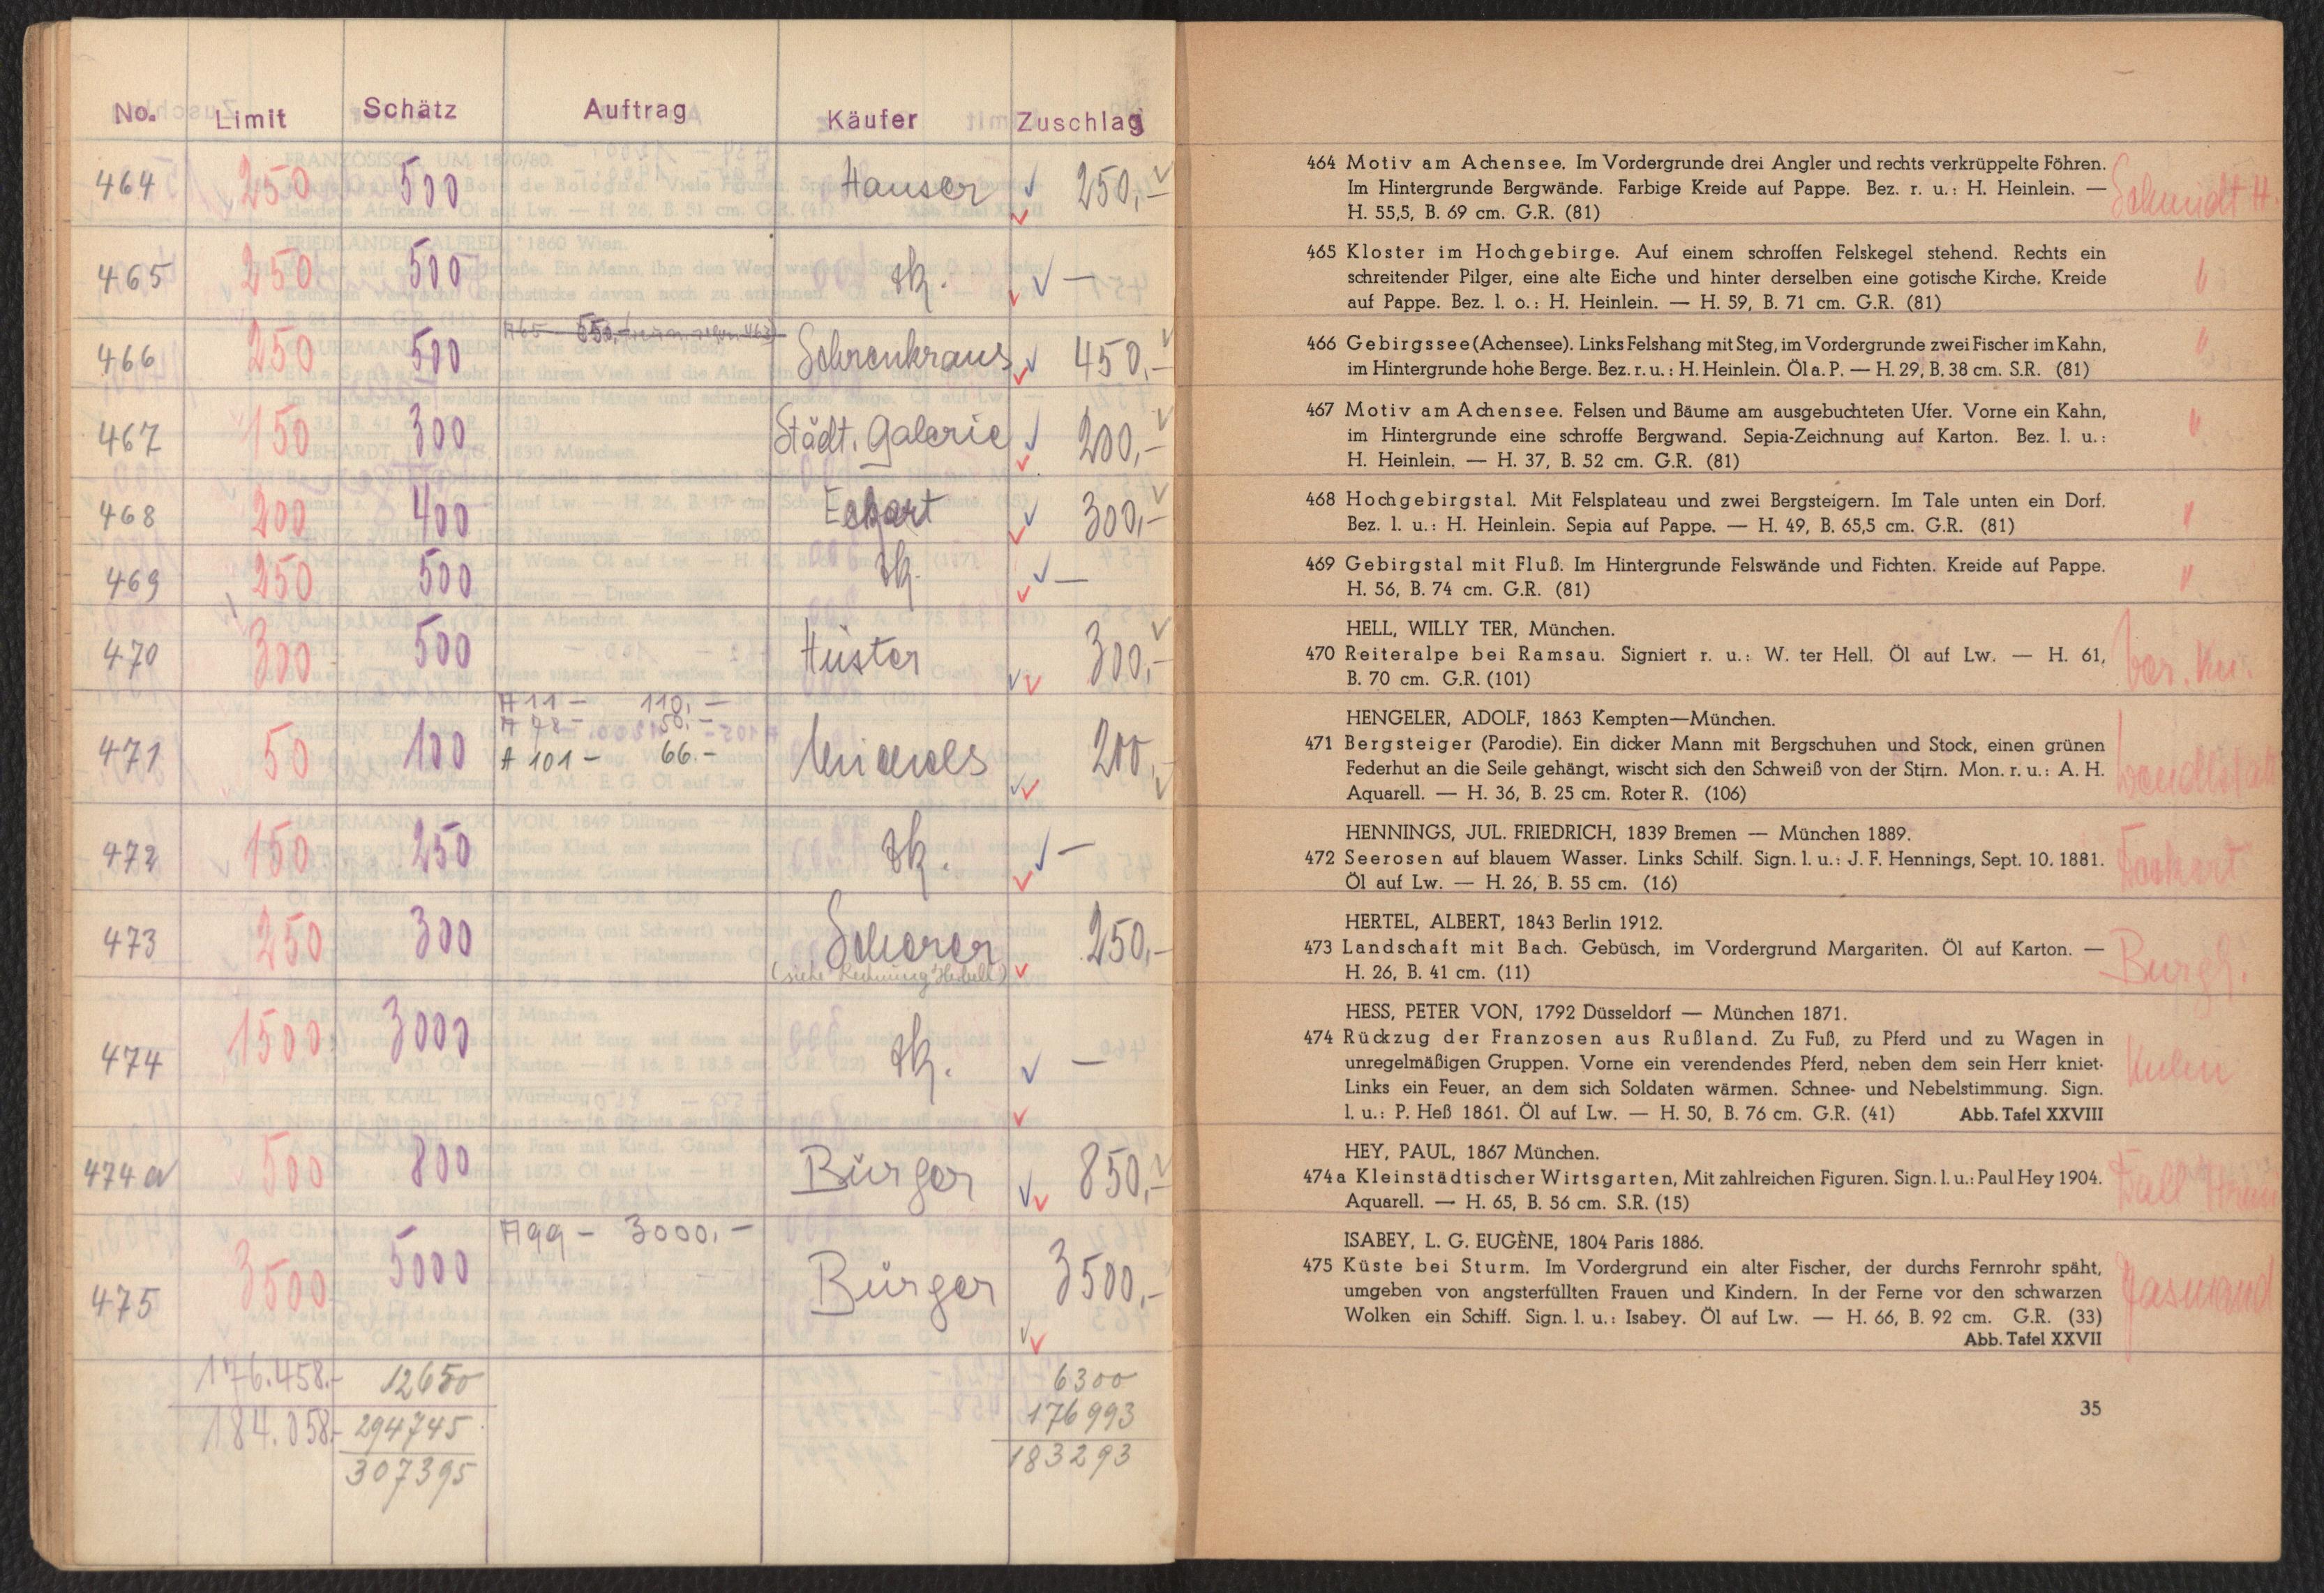 No. Limit Schätz Auftrag Käufer Zuschlag
464 250 500 Hauser 250,-
465 250 500 zk. —
466 250 500 A65 - 550,- Schrenkraus 450,-
467 150 300 Städt. Galerie 200,-
468 200 400 Eckart 300,-
469 250 500 zk. —
470 300 500 Hüster 300,-
A 11 — 110,-
A 78 - 50,-
471 50 100 A 101 — 66.- Michels 200,-
472 150 250 zk. —
473 250 300 Scherer 250,-
(siehe Rechnung
474 1500 3000 zk. —
474a 500 800 Bürger 850,-
A99 - 3000,-
475 3500 5000 Bürger 3500,-
176.458.- 12650 6300
184.058.- 294745 176993
307395 183293
464 Motiv am Achensee. Im Vordergrunde drei Angler und rechts verkrüppelte Föhren.
Im Hintergrunde Bergwände. Farbige Kreide auf Pappe. Bez. r. u.: H. Heinlein. — Schmidt H.
H. 55,5, B. 69 cm. G.R. (81)
465 Kloster im Hochgebirge. Auf einem schroffen Felskegel stehend. Rechts ein
schreitender Pilger, eine alte Eiche und hinter derselben eine gotische Kirche. Kreide "
auf Pappe. Bez. l. o.: H. Heinlein. — H. 59, B. 71 cm. G.R. (81)
466 Gebirgssee (Achensee). Links Felshang mit Steg, im Vordergrunde zwei Fischer im Kahn, "
im Hintergrunde hohe Berge. Bez. r. u.: H. Heinlein. Öl a. P. — H. 29, B. 38 cm. S.R. (81)
467 Motiv am Achensee. Felsen und Bäume am ausgebuchteten Ufer. Vorne ein Kahn, "
im Hintergrunde eine schroffe Bergwand. Sepia-Zeichnung auf Karton. Bez. l. u.:
H. Heinlein. — H. 37, B. 52 cm. G.R. (81)
468 Hochgebirgstal. Mit Felsplateau und zwei Bergsteigern. Im Tale unten ein Dorf.
Bez. l. u.: H. Heinlein. Sepia auf Pappe. — H. 49, B. 65,5 cm. G.R. (81) "
469 Gebirgstal mit Fluß. Im Hintergrunde Felswände und Fichten. Kreide auf Pappe.
H. 56, B. 74 cm. G.R. (81) "
HELL, WILLY TER, München.
470 Reiteralpe bei Ramsau. Signiert r. u.: W. ter Hell. Öl auf Lw. — H. 61,
B. 70 cm. G.R. (101)
HENGELER, ADOLF, 1863 Kempten—München.
471 Bergsteiger (Parodie). Ein dicker Mann mit Bergschuhen und Stock, einen grünen
Federhut an die Seile gehängt, wischt sich den Schweiß von der Stirn. Mon. r. u.: A. H.
Aquarell. — H. 36, B. 25 cm. Roter R. (106)
HENNINGS, JUL. FRIEDRICH, 1839 Bremen — München 1889.
472 Seerosen auf blauem Wasser. Links Schilf. Sign. l. u.: J. F. Hennings, Sept. 10. 1881.
Öl auf Lw. — H. 26, B. 55 cm. (16)
HERTEL, ALBERT, 1843 Berlin 1912.
473 Landschaft mit Bach. Gebüsch, im Vordergrund Margariten. Öl auf Karton. — Burgh.
H. 26, B. 41 cm. (11)
HESS, PETER VON, 1792 Düsseldorf — München 1871.
474 Rückzug der Franzosen aus Rußland. Zu Fuß, zu Pferd und zu Wagen in
unregelmäßigen Gruppen. Vorne ein verendendes Pferd, neben dem sein Herr kniet.
Links ein Feuer, an dem sich Soldaten wärmen. Schnee- und Nebelstimmung. Sign.
l. u.: P. Heß 1861. Öl auf Lw. — H. 50, B. 76 cm. G.R. (41) Abb. Tafel XXVIII
HEY, PAUL, 1867 München.
474a Kleinstädtischer Wirtsgarten, Mit zahlreichen Figuren. Sign. l. u.: Paul Hey 1904.
Aquarell. — H. 65, B. 56 cm. S.R. (15)
ISABEY, L. G. EUGÈNE, 1804 Paris 1886.
475 Küste bei Sturm. Im Vordergrund ein alter Fischer, der durchs Fernrohr späht,
umgeben von angsterfüllten Frauen und Kindern. In der Ferne vor den schwarzen
Wolken ein Schiff. Sign. l. u.: Isabey. Öl auf Lw. — H. 66, B. 92 cm. G.R. (33)
Abb. Tafel XXVII
35